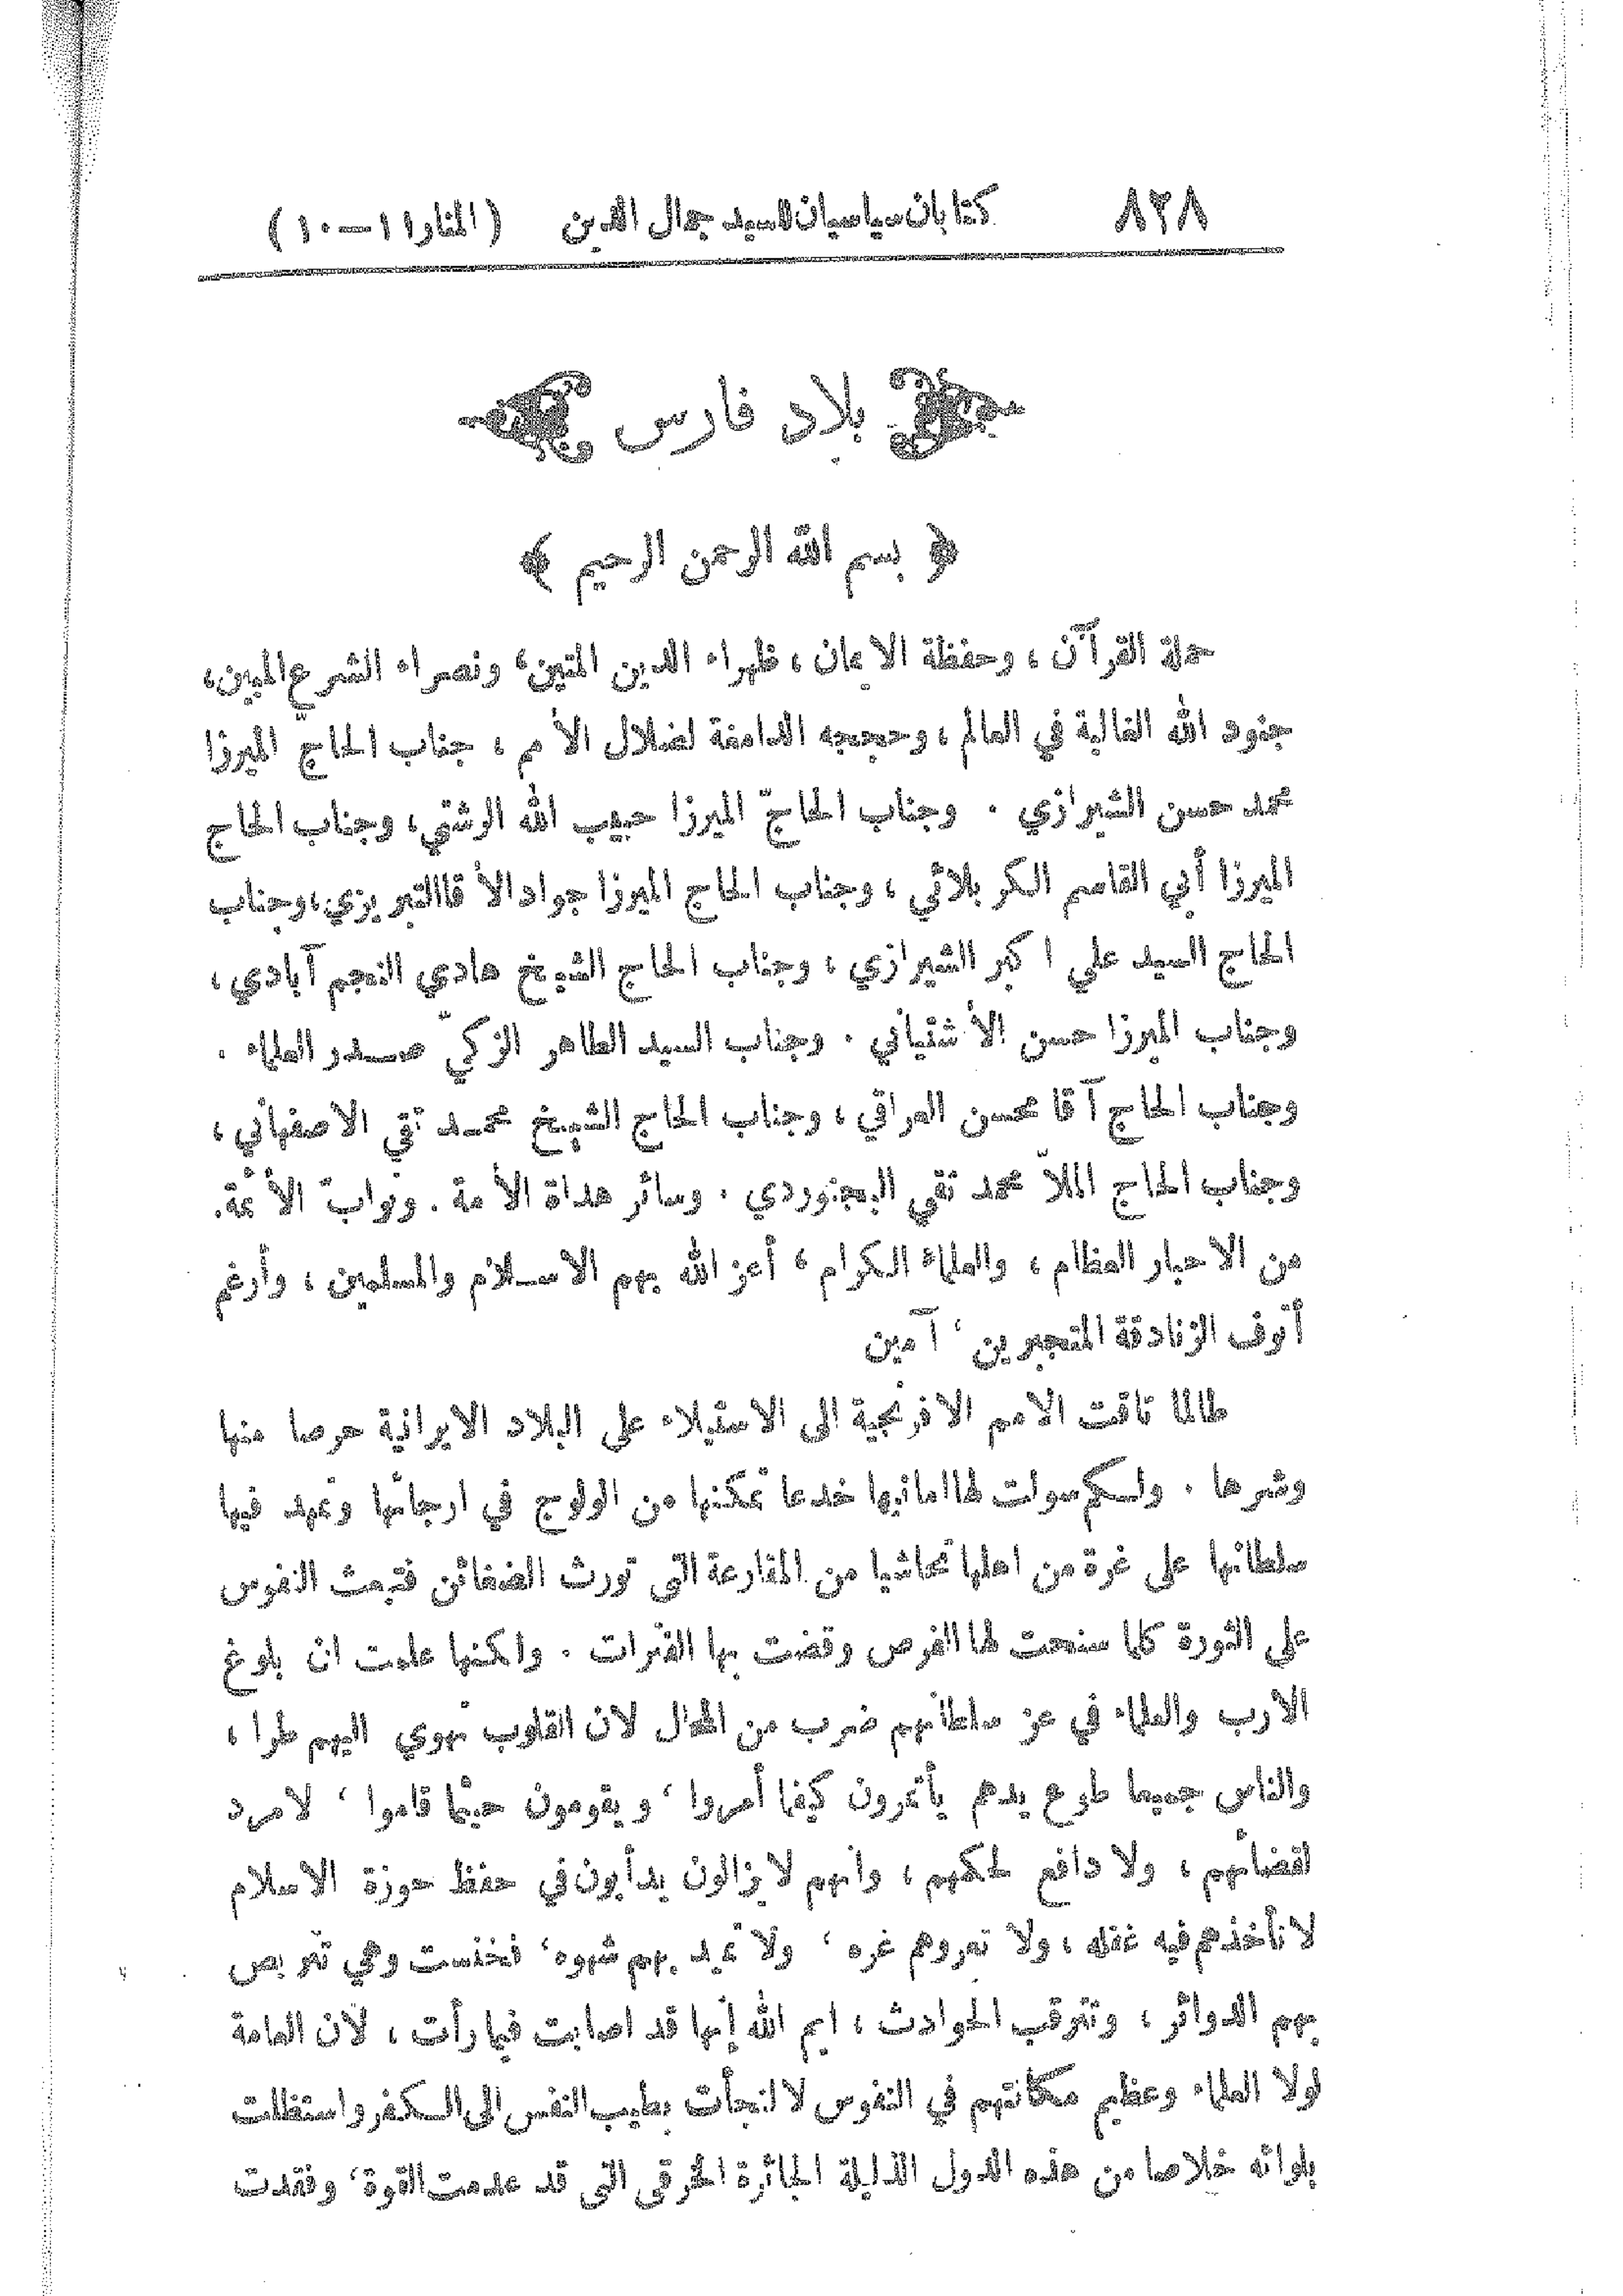 ٨٢٨ كتابان سياسيان للسيد جمال الدين (المنار ١١ — ١٠)
بلاد فارس
﴿ بسم الله الرحمن الرحيم ﴾
حملة القرآن ، وحفظة الايمان ، ظهراء الدين المتين، ونصراء الشرع المبين،
جنود الله الغالبة في العالم ، وحججه الدامغة لضلال الأمم ، جناب الحاجّ الميرزا
محمد حسن الشيرازي . وجناب الحاجّ الميرزا حبيب الله الرشتي، وجناب الحاج
الميرزا أبي القاسم الكربلائي ، وجناب الحاج الميرزا جواد الأقا التبريزي، وجناب
الحاج السيد علي اكبر الشيرازي ، وجناب الحاج الشيخ هادي النجم آبادي ،
وجناب الميرزا حسن الأشتياني . وجناب السيد الطاهر الزكيّ صدر العلماء .
وجناب الحاج آقا محسن العراقي ، وجناب الحاج الشيخ محمد تقي الاصفهاني ،
وجناب الحاج الملاّ محمد تقي البجنوردي . وسائر هداة الأمة . ونوابّ الأئمة.
من الاحبار العظام ، والعلماء الكرام ، أعز الله بهم الاسلام والمسلمين ، وأرغم
أنوف الزنادقة المتجبرين ، آمين
طالما تاقت الامم الافرنجية الى الاستيلاء على البلاد الايرانية حرصا منها
وشرها . ولكم سولت لها امانيها خدعا تمكنها من الولوج في ارجائها وتمهد فيها
سلطانها على غرة من اهلها تحاشيا من المقارعة التى تورث الضغائن فتبعث النفوس
على الثورة كلما سنحت لها الفرص وقضت بها الفترات . ولكنها علمت ان بلوغ
الارب والعلماء في عز سلطانهم ضرب من المحال لان القلوب تهوي اليهم طرا ،
والناس جميعا طوع يدهم يأتمرون كيفما أمروا ، ويقومون حيثما قاموا ، لا مرد
لقضائهم ، ولا دافع لحكمهم ، وانهم لا يزالون يدأبون في حفظ حوزة الاسلام
لا تأخذهم فيه غفله ، ولا تعروهم غره ، ولا تميد بهم شهوه ، فخنست وهي تتربص
بهم الدوائر ، وتترقب الحوادث ، ايم الله إنها قد اصابت فيما رأت ، لأن العامة
لولا العلماء وعظيم مكانتهم في النفوس لالتجأت بطيب النفس الى الكفر واستظلت
بلوائه خلاصا من هذه الدول الذليلة الجائرة الخرقى التى قد عدمت القوة ، وفقدت